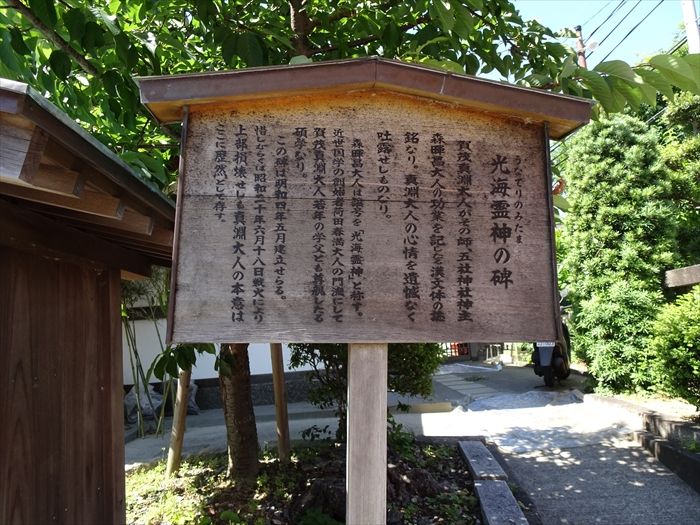 うなてりのみたま
光海霊神の碑
賀茂真淵大人がその師五社神社神主
森暉昌大人の功業を記した漢文体の墓
銘なり。真淵大人の心情を遺憾なく
吐露せしものなり。
森暉昌大人は諡号を「光海霊神」と称す。
近世国学の創始者荷田春満大人の門流にして
賀茂真淵大人若年の学父とも景観したる
碩学なり。
この碑は明和四年五月建立せらる。
惜むらくは昭和二十年六月十八日戦火により
上部損壊せしも真淵大人の本意は
ここに歴然として存す。